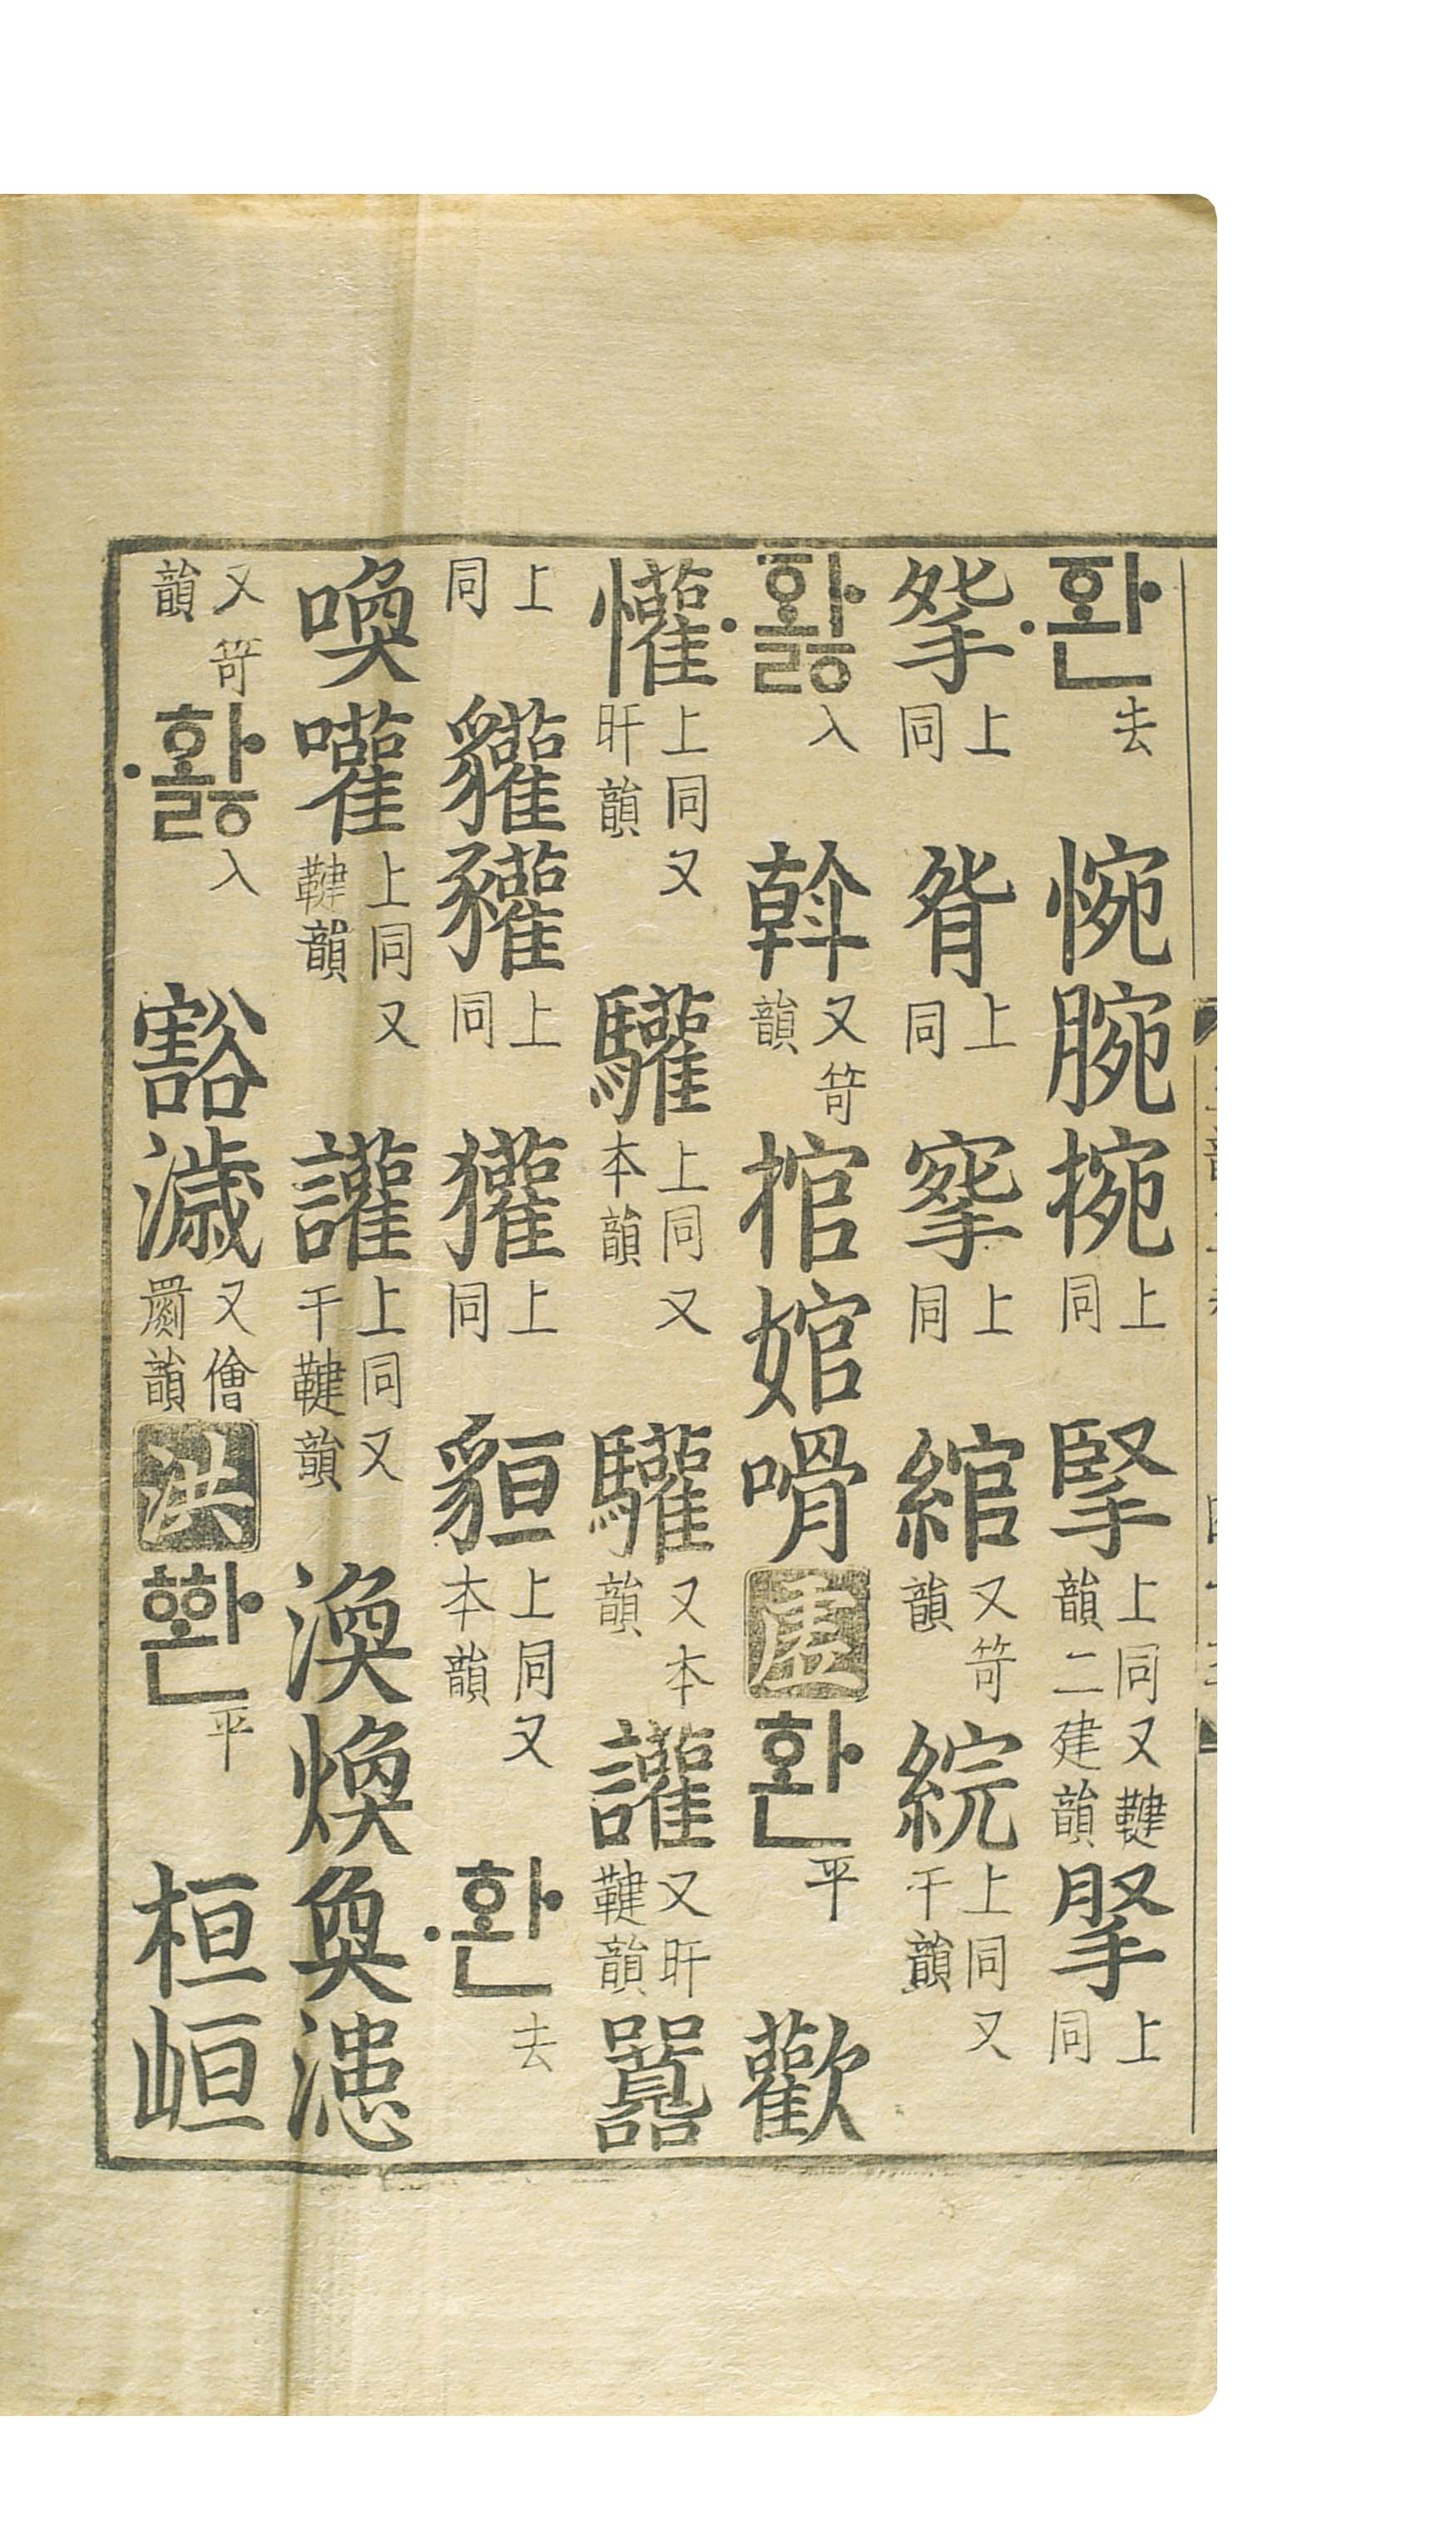 ·ᅙᅪᆫ去 惋腕捥上同 掔上同又鞬韻二建韻 上同
上同 上同 上同 綰又笴韻 綄上同又干韻
·ᅙᅪᇙ入 斡又笴韻 捾婠嗗 虛 환平 歡
懽上同又旰韻 驩上同又本韻 驩又本韻 讙又旰鞬韻
上同 貛𧲠上同 獾上同 貆上同又本韻 ·환去
喚嚾上同又鞬韻 讙上同又干鞬韻 渙煥奐漶
又笴韻 ·화ᇙ入 豁濊又儈罽韻 洪 ᅘᅪᆫ平 桓峘